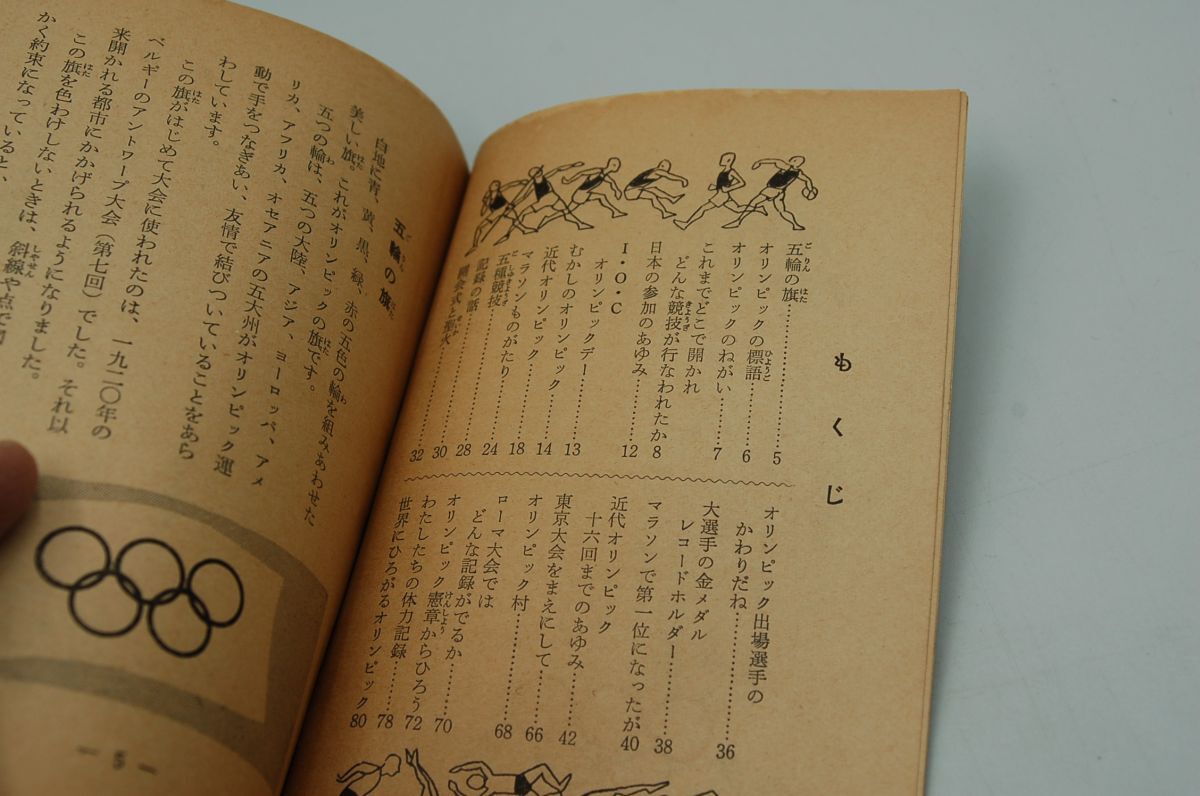 もくじ
五輪の旗…………5
オリンピックの標語…………6
オリンピックのねがい…………7
これまでどこで開かれ
どんな競技が行なわれたか 8
日本の参加のあゆみ…………12
I・O・C
オリンピックデー…………13
むかしのオリンピック…………14
近代オリンピック…………18
マラソンものがたり…………24
五種競技…………28
記録の話…………30
開会式と聖火…………32
オリンピック出場選手の
かわりだね…………36
大選手の金メダル
レコードホルダー…………38
マラソンで第一位になったが 40
近代オリンピック
十六回までのあゆみ…………42
東京大会をまえにして…………66
オリンピック村…………68
ローマ大会では
どんな記録がでるか…………70
オリンピック憲章からひろう 72
わたしたちの体力記録…………78
世界にひろがるオリンピック 80
五輪の旗
白地に青、黄、黒、緑、赤の五色の輪を組みあわせた
美しい旗。これがオリンピックの旗です。
五つの輪は、五つの大陸、アジア、ヨーロッパ、アメ
リカ、アフリカ、オセアニアの五大州がオリンピック運
動で手をつなぎあい、友情で結びついていることをあら
わしています。
この旗がはじめて大会に使われたのは、一九二〇年の
ベルギーのアントワープ大会（第七回）でした。それ以
来開かれる都市にかかげられるようになりました。
この旗を色わけしないときは、斜線や点で
かく約束になっていると、
— 5 —